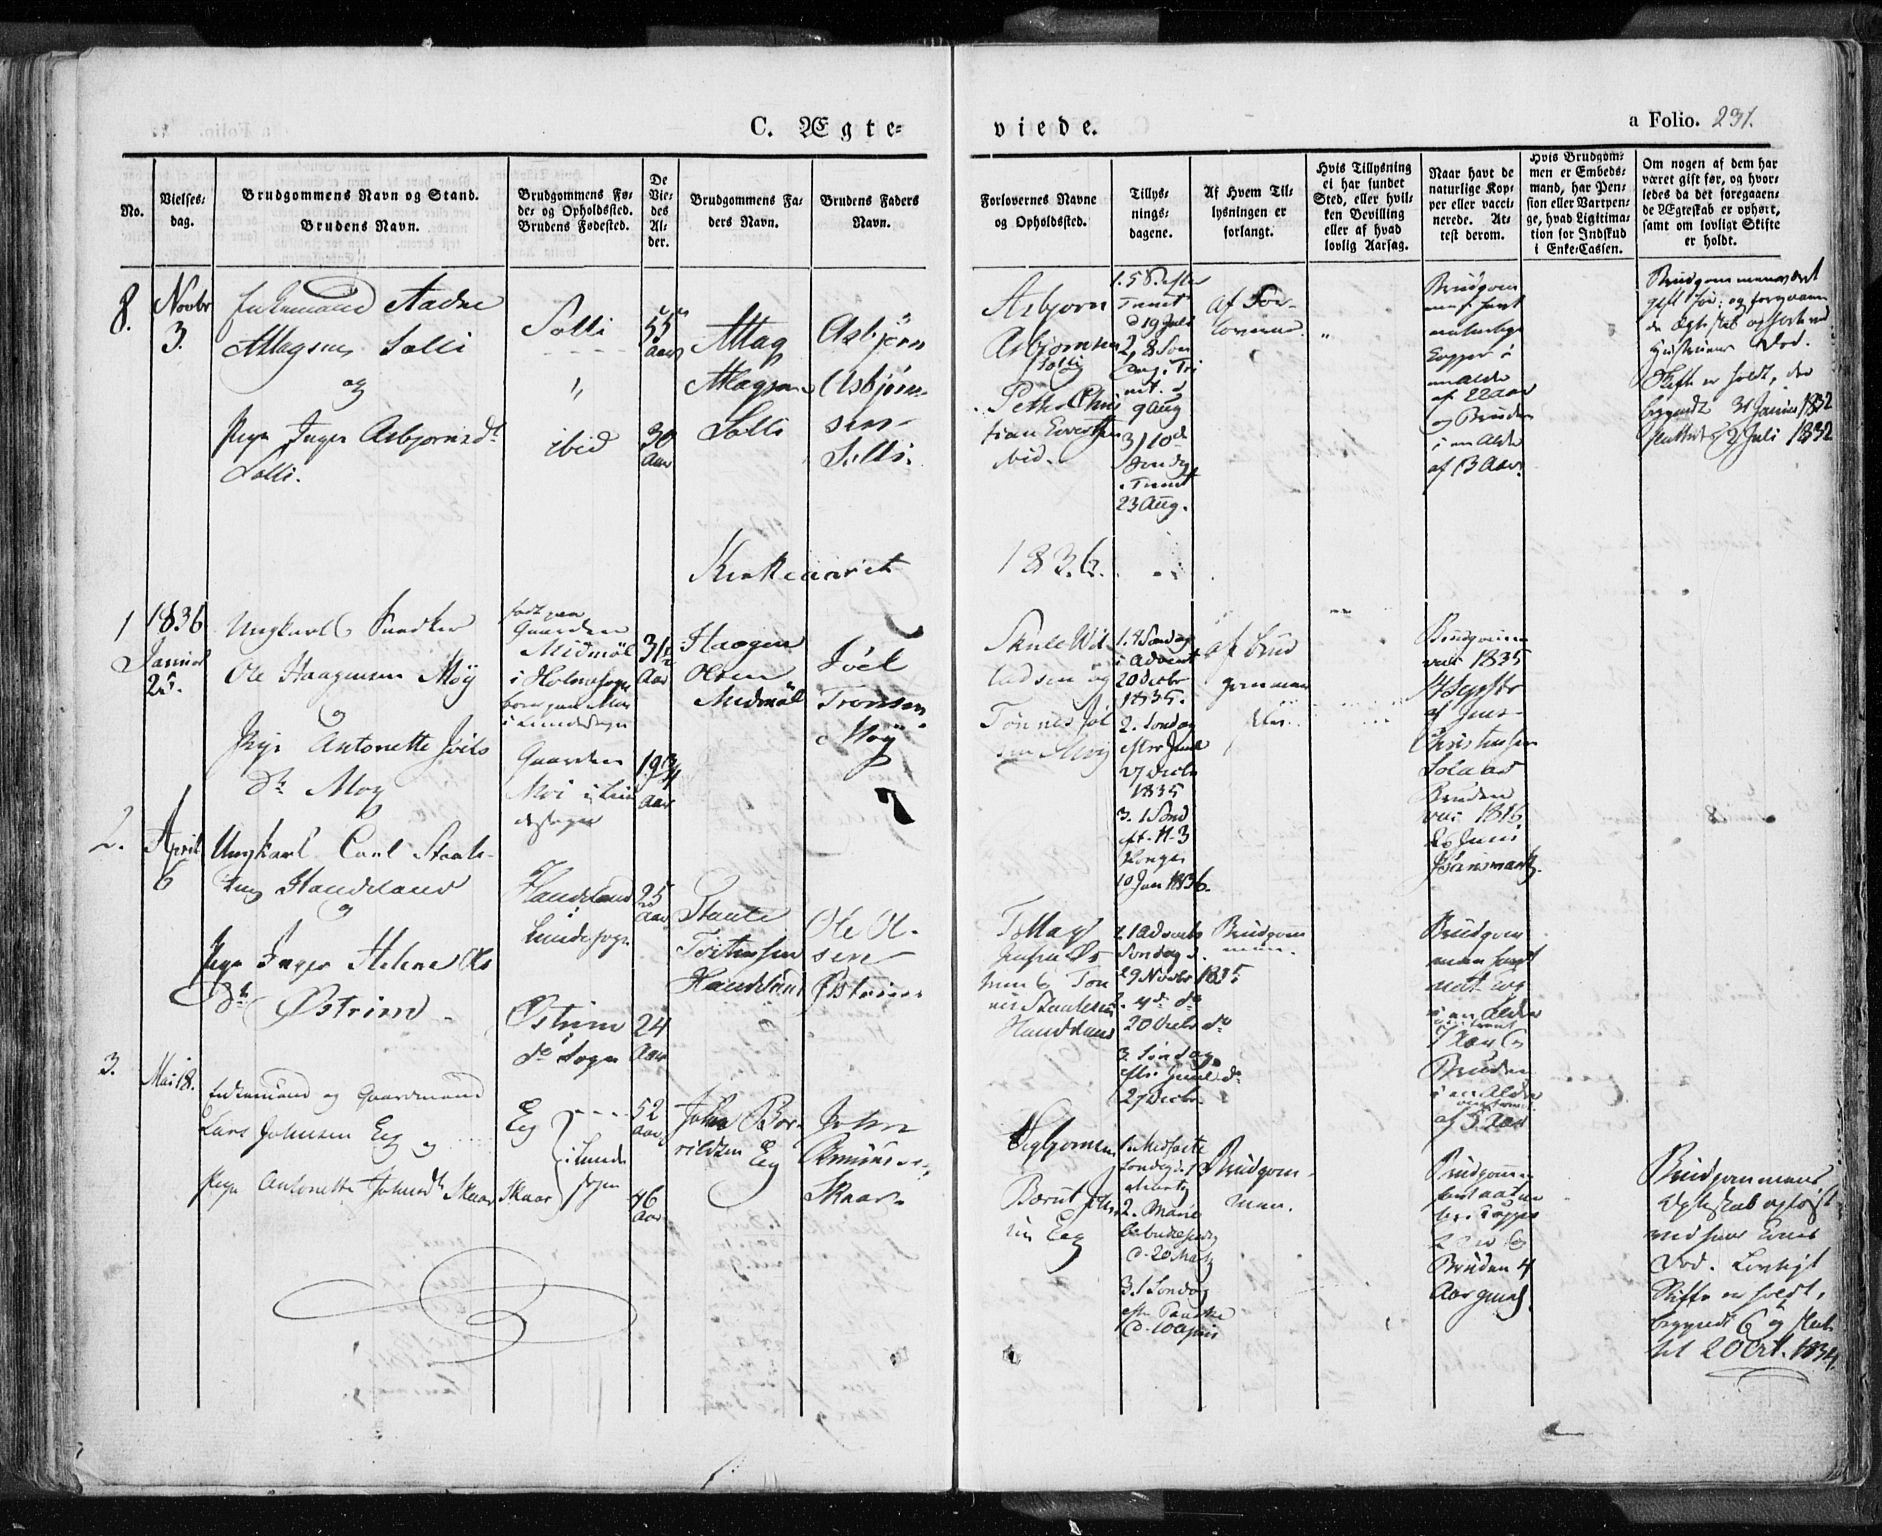 C. Ægte-
viede.
a Folio. 231.
No.
Vielses-
dag.
Brudgommens Navn og Stand.
Brudens Navn.
Brudgommens Fø-
de- og Opholdssted.
Brudens Fødested.
De
Vie-
des
Al-
der.
Brudgommens Fa-
ders Navn.
Brudens Faders
Navn.
Forlovernes Navne
og Opholdssted.
Tillys-
nings-
dagene.
Af Hvem Til-
lysningen er
forlangt.
Hvis Tillysning
ei har fundet
Sted, eller hvil-
ken Bevilling
eller af hvad
lovlig Aarsag.
Naar havt de
naturlige Kop-
per eller vacci-
nerede. At-
test derom.
Hvis Brudgom-
men er Embeds-
mand, har Pen-
sion eller Vartpen-
ge, hvad Ligitima-
tion for Indskud
i Enke-Cassen.
Om nogen af dem har
været gift før, og hvor-
ledes da det foregaaen-
de Ægteskab er ophørt,
samt om lovligt Skifte
er holdt.
8.
Novbr
3.
Enkemand Aadne
Atlagsen Solli
og
Pige Inger Asbjørnsdt
Solli.
Solli
"
ibid
55
Aar
30
Aar
Atlag
Atlagsen
Solli
Asbjørn
Asbjørn-
sen
Solli.
Asbjørn
Asbjørnsen
Solli
Peth Chris
tian Evertsen
ibid.
1. 5 S. efter
Trinit
d 19 Juli
2, 8 Søn
dag i Tri
nit. d
9 Aug
3) 10de
Søndag
Trinit
23 Aug.
af For-
loverne.
"
Brudgom
men havt
naturlige
Kopper i
en Alder
af 22 Aar
og Bruden
i en Alder
af 13 Aar.
Brudgommen været
gift før, og foregaaen
de Ægteskab ophørt ved
Hustruens Død.
Skifte er holdt, der
begyndt 31 Januar 1832
sluttet 2 Juli 1832
Kirkeaaret
1836.
1
1836
Januar
25.
Ungkarl Snedker
Ole Haagensen Moy
og
Pige Antonette Joels
Dr Moy
født paa
Gaarden
Midmøl
i Holmesogn
boer paa Moi
i Lundesogn
Gaarden
Moi i Lun
desogn
31 1/2
Aar
19 3/4
Aar
Haagen
Olsen
Midmøl
Joel
Tronsen
Moy
Skule Wil
ladsen og
Tønnes Joel
sen Moy
1. 4 Søndag
i Advent
20 Decbr
1835.
2. Søndag
efter Juul
27 Decbr
1835
3. 1 Sønd
eft. H. 3
Konger
10 Jan 1836.
af Brud
gommen
Brudgommen
vac 1835
14 Septbr
af Jens
Christensen
Bruden
vac 1816
26 Juni
2.
April
6
Ungkarl Carl Staale-
sen Handeland
og
Pige Inger Helene Ols
Dtr Østrim
Handeland
Lundesogn
Østrim
do Sogn
25
Aar
24
Aar
Staale
Handeland
Ole Ol-
sen
Østrim
Handeland
1. 1 Advents
Søndag d.
29 Novbr 1835
2. 4de do
20 Decbr do
3. Søndag
efter Juul do
27 Decbr.
Brudgom
men.
Brudgom
men havt
nat. Kop
i en Alder
Bruden
i en Alder
af 5 Aar
3.
Mai 18.
Enkemand og Gaardmand
Lars Johnsen Eeg og
Pige Antonette Johnsdt Skaar
Eeg
Skaar
i Lunde
Sogn
52
Aar
46
Aar
John Bor-
rildsen
Eeg
John
Skaar
Berent John
sen Eeg
1. Midfaste
Søndag d. 1
2. Marie
Bebudelsesdag
d. 20 Marts
3. 1 Søndag
efter Paaske
d. 10 April
Brudgom-
men.
Brudgommen
Bruden 4
Aar gml.
Brudgommens
Ægteskab opløst
ved hans Kones
Død. Lovligt
Skifte er holdt,
begyndt 6 og slut-
tet 20 Oct. 1834